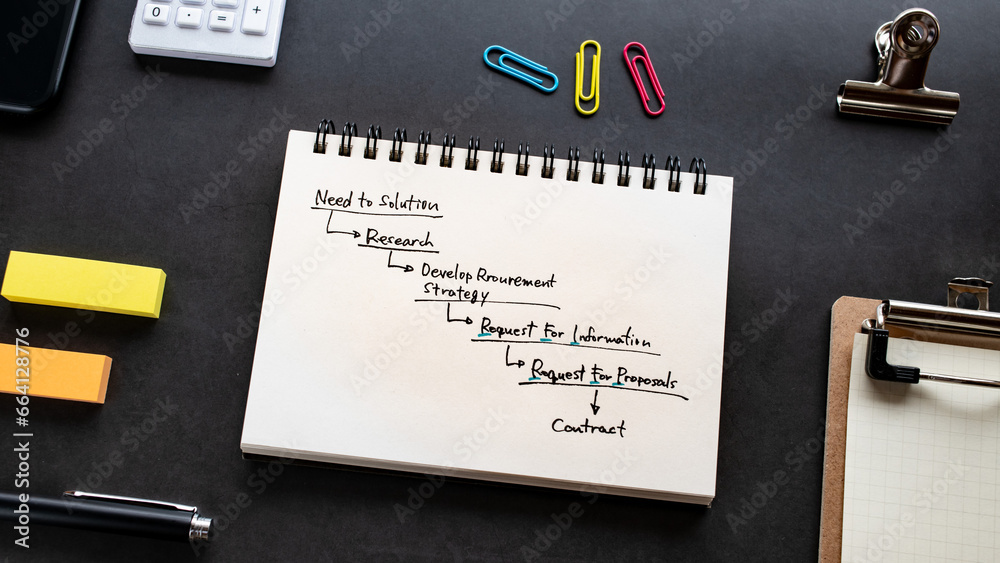 0
=
+
Need to Solution
Research
Develop Rrourement
Strategy
Request For Information
Request For Proposals
Contract
Adobe Stock | #664128776